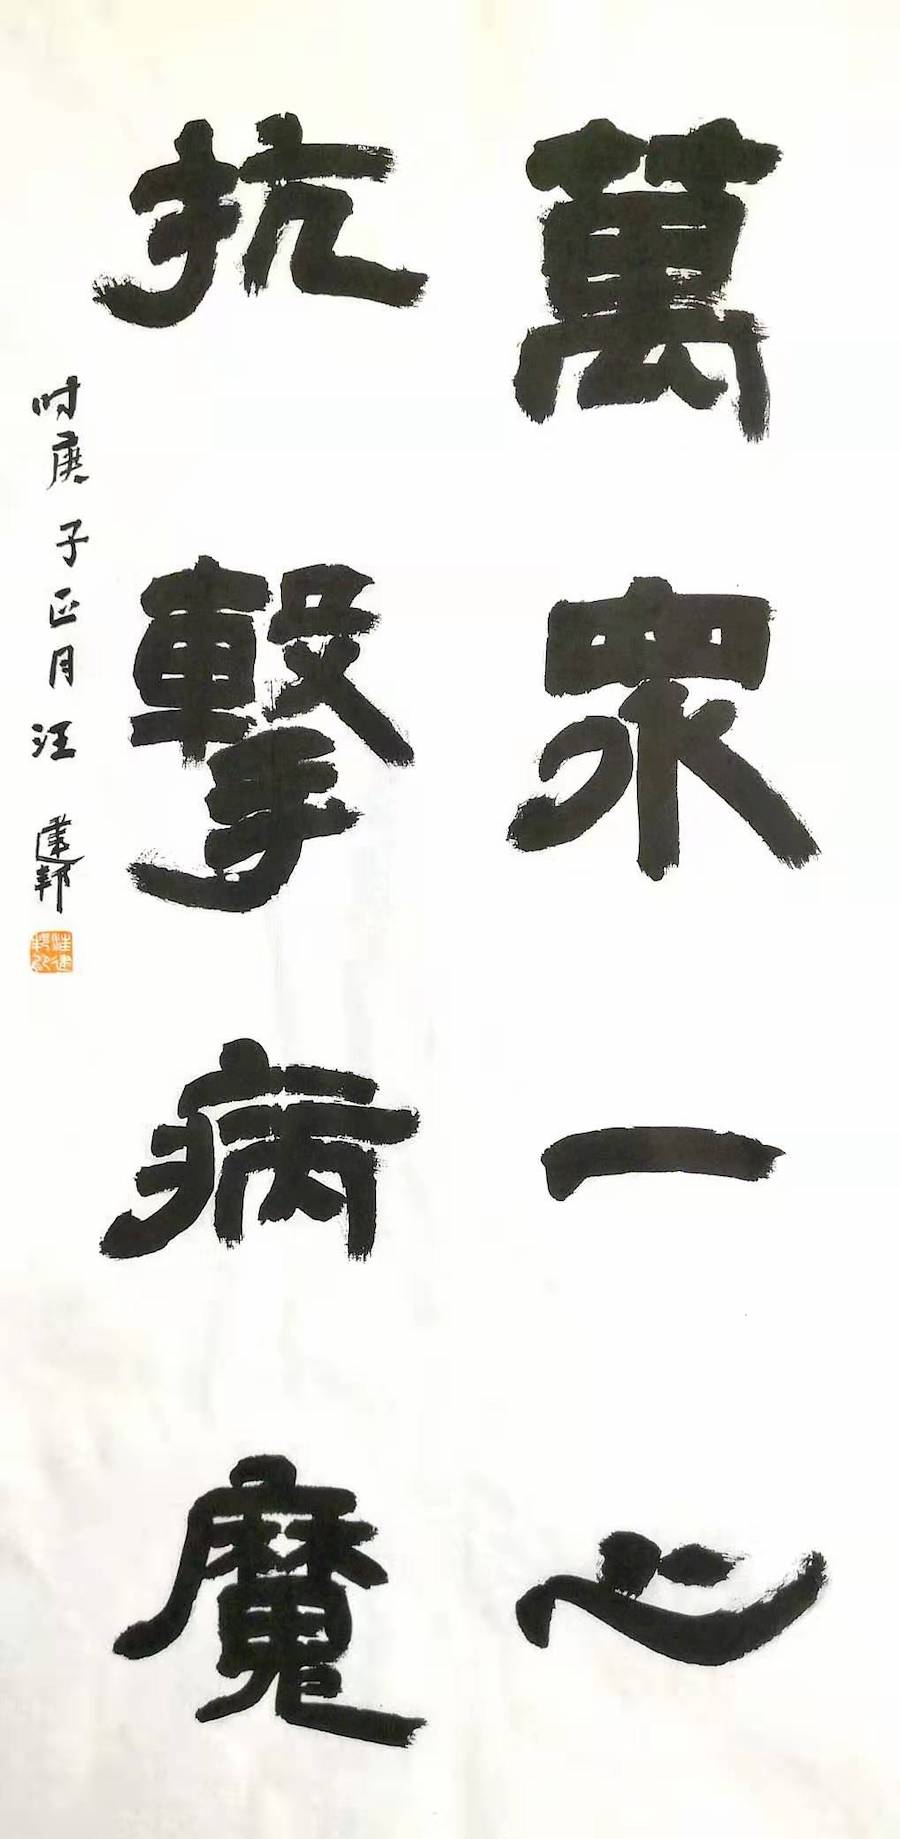 萬眾一心
抗擊病魔
时庚子正月汪建邦